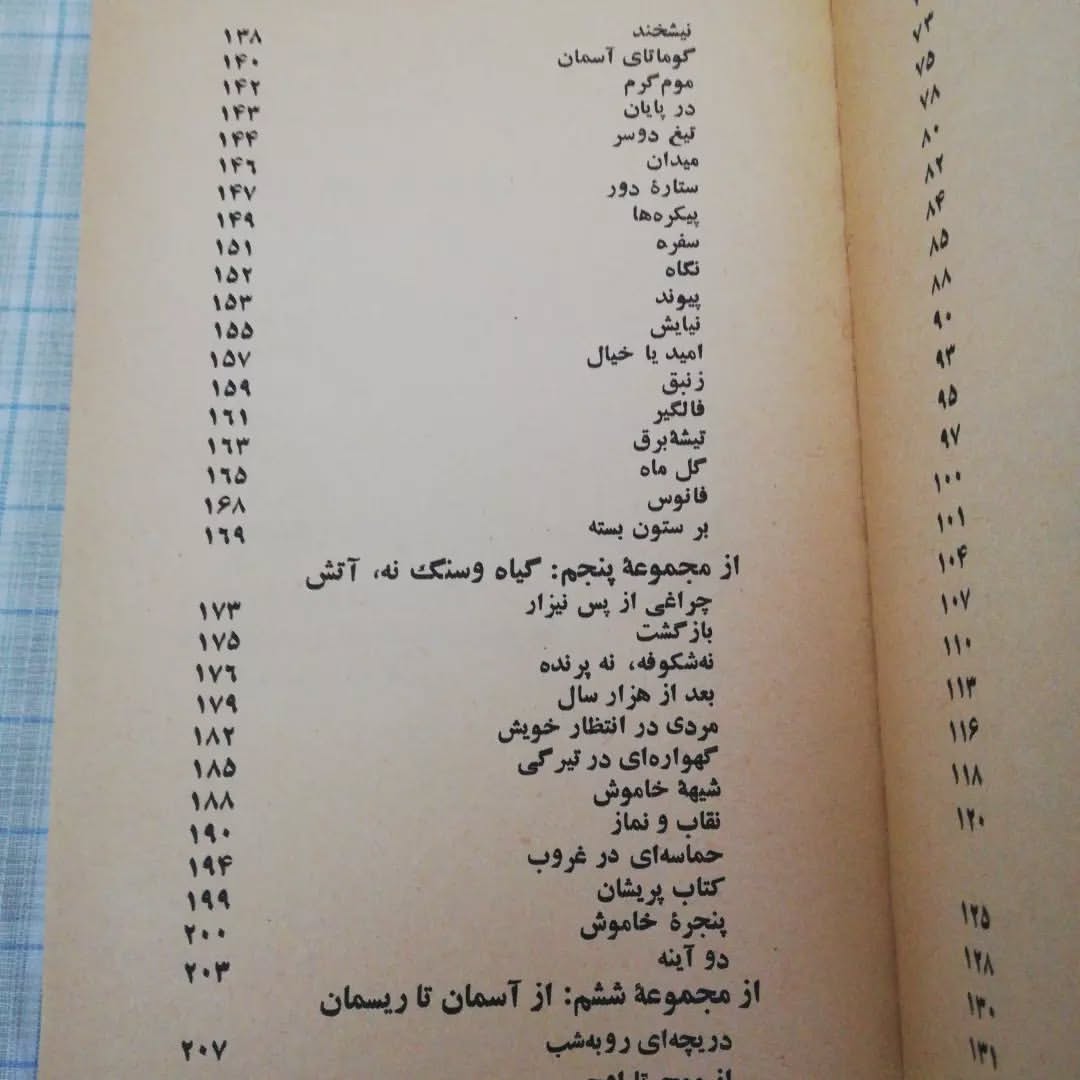 ۷۳
۷۵
۷۸
۸۰
۸۲
۸۴
۸۵
۸۸
۹۰
۹۳
۹۵
۹۷
۱۰۰
۱۰۱
۱۰۴
۱۰۷
۱۱۰
۱۱۳
۱۱۶
۱۱۸
۱۲۰
۱۲۵
۱۲۸
۱۳۰
۱۳۱
نیشخند ۱۳۸
گوماتای آسمان ۱۴۰
موم گرم ۱۴۲
در پایان ۱۴۳
تیغ دوسر ۱۴۴
میدان ۱۴۶
ستارهٔ دور ۱۴۷
پیکره‌ها ۱۴۹
سفره ۱۵۱
نگاه ۱۵۲
پیوند ۱۵۳
نیایش ۱۵۵
امید یا خیال ۱۵۷
زنبق ۱۵۹
فالگیر ۱۶۱
تیشهٔ برق ۱۶۳
گل ماه ۱۶۵
فانوس ۱۶۸
بر ستون بسته ۱۶۹
از مجموعهٔ پنجم: گیاه وسنگ نه، آتش
چراغی از پس نیزار ۱۷۳
بازگشت ۱۷۵
نه‌شکوفه، نه پرنده ۱۷۶
بعد از هزار سال ۱۷۹
مردی در انتظار خویش ۱۸۲
گهواره‌ای در تیرگی ۱۸۵
شیههٔ خاموش ۱۸۸
نقاب و نماز ۱۹۰
حماسه‌ای در غروب ۱۹۴
کتاب پریشان ۱۹۹
پنجرهٔ خاموش ۲۰۰
دو آینه ۲۰۳
از مجموعهٔ ششم: از آسمان تا ریسمان
دریچه‌ای روبه‌شب ۲۰۷